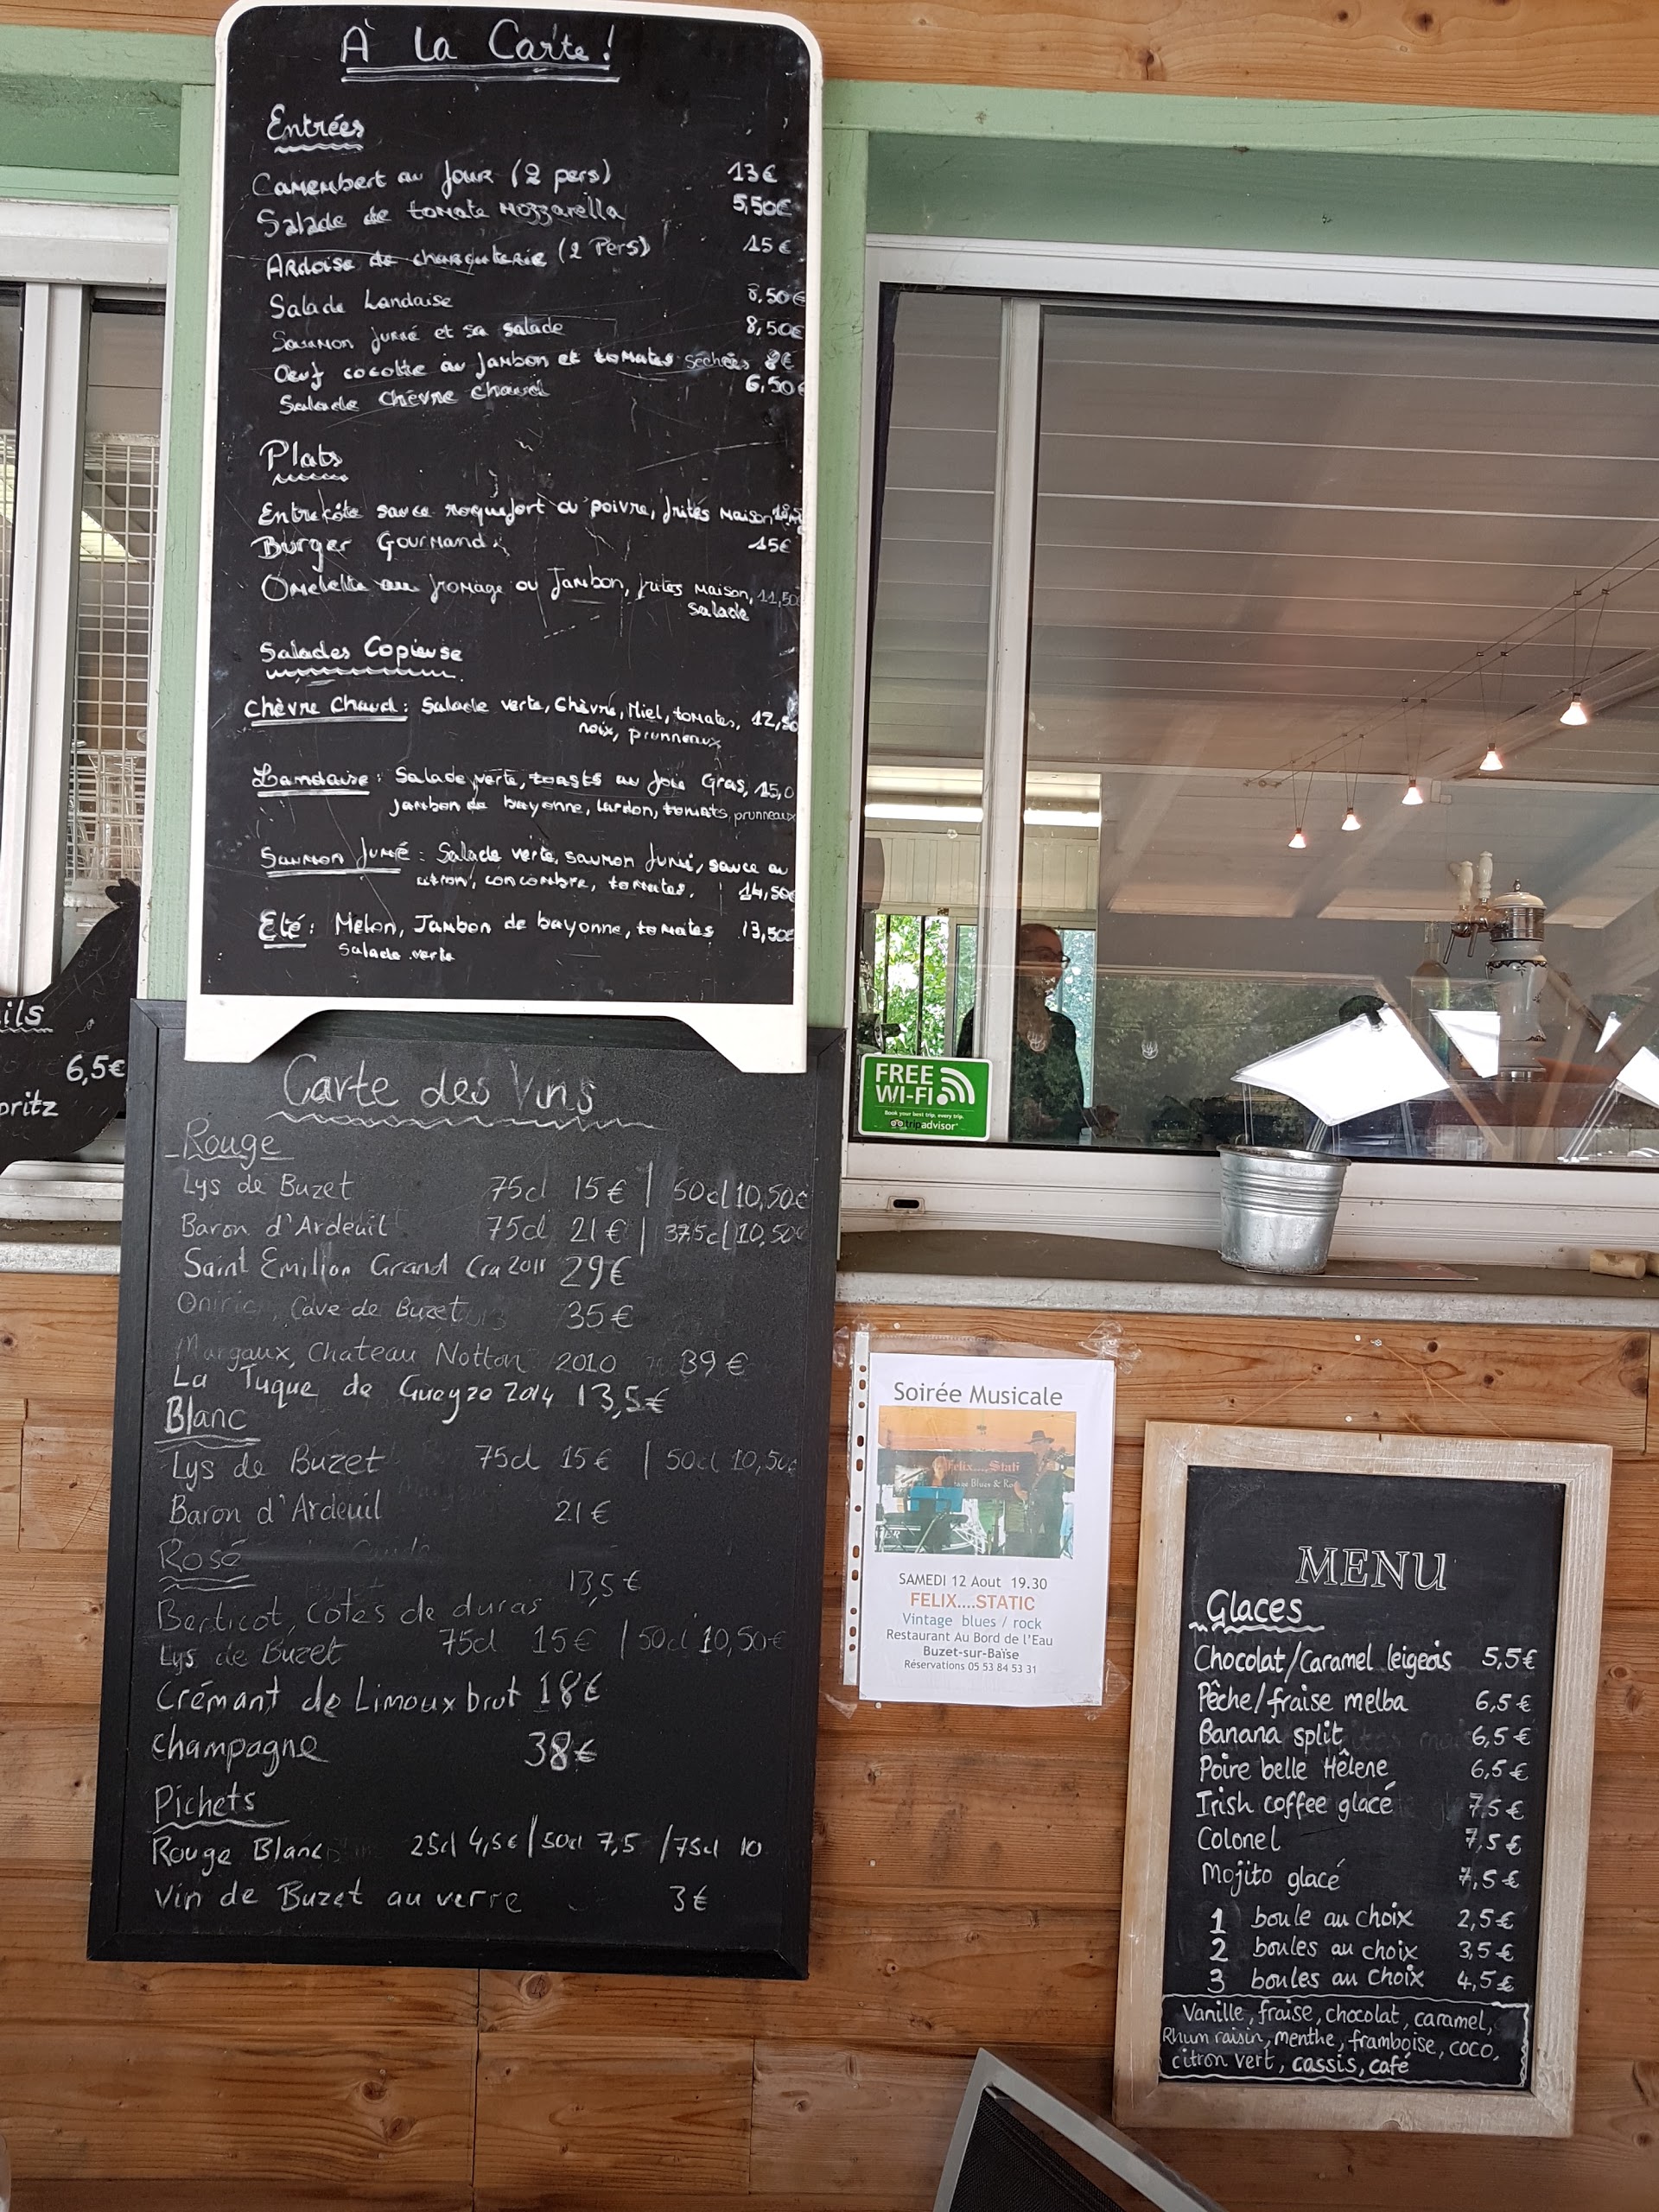 À La Carte!
Entrées
Camembert au four (2 pers) 13€
Salade de tomate Mozzarella 5,50€
Ardoise de charcuterie (2 Pers) 15€
Salade Landaise 8,50€
Saumon fumé et sa salade 8,50€
Oeuf cocotte au Jambon et tomates séchées 8€
Salade Chèvre chaud 6,50€
Plats
Entrecôte sauce roquefort ou poivre, frites Maison
Burger Gourmand 15€
Omelette au fromage ou Jambon, frites Maison, 11,50
Salade
Salades Copieuse
Chèvre Chaud: Salade verte, Chèvre, Miel, tomates, 12,50
noix, prunneaux
Landaise: Salade verte, toasts au foie Gras, 15,0
jambon de bayonne, lardon, tomats, prunneaux
Saumon fumé: Salade verte, saumon fumé, sauce au
citron, concombre, tomates, 14,50€
Eté: Melon, Jambon de bayonne, tomates 13,50€
Salade verte
ils
6,5€
pritz
Carte des Vins
Rouge
Lys de Buzet 75cl 15€ | 50cl 10,50€
Baron d'Ardeuil 75cl 21€ | 37,5cl 10,50€
Saint Emilion Grand Cru 2011 29€
Oniric, Cave de Buzet 35€
Margaux, Chateau Notton 2010 39€
La Tuque de Gueyze 2014 13,5€
Blanc
Lys de Buzet 75cl 15€ | 50cl 10,50€
Baron d'Ardeuil 21€
Rosé
13,5€
Berticot, Cotes de duras
Lys de Buzet 75cl 15€ | 50cl 10,50€
Crémant de Limoux brut 18€
champagne 38€
Pichets
Rouge Blanc 25cl 4,5€ / 50cl 7,5 / 75cl 10
Vin de Buzet au verre 3€
FREE
WI-FI
Book your best trip, every trip.
tripadvisor
Soirée Musicale
Felix....Stati
SAMEDI 12 Aout 19.30
FELIX....STATIC
Vintage blues / rock
Restaurant Au Bord de l'Eau
Buzet-sur-Baïse
Réservations 05 53 84 53 31
MENU
Glaces
Chocolat/Caramel leigeois 5,5€
Pêche/fraise melba 6,5€
Banana split 6,5€
Poire belle Hêlene 6,5€
Irish coffee glacé 7,5€
Colonel 7,5€
Mojito glacé 7,5€
1 boule au choix 2,5€
2 boules au choix 3,5€
3 boules au choix 4,5€
Vanille, fraise, chocolat, caramel,
Rhum raisin, menthe, framboise, coco,
citron vert, cassis, café